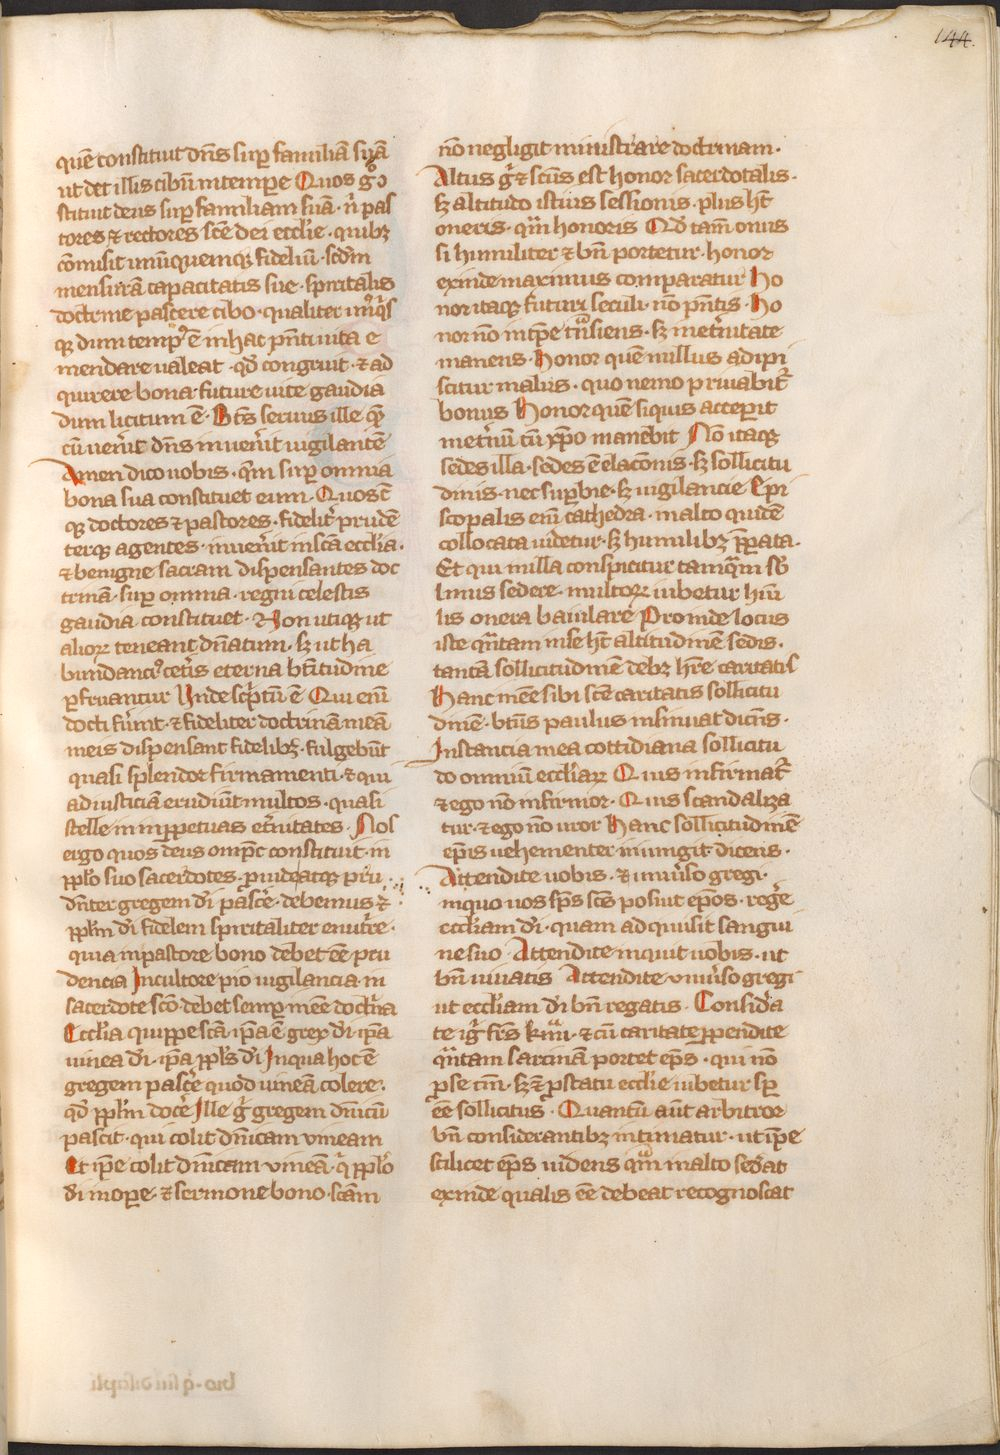 144.
quē constituit dn̄s suꝑ familiā suā
ut det illis cibū in tempore Quos gͦ ↄ
stituit deus suꝑ familiam suā · n̄ pas
tores ⁊ rectores scē dei ecclīe · quibꝫ
cōmisit unūquemqꝫ fideliū · scdm̄
mensurā capacitatis sue · spiritalis
doctrine pascere cibo · qualiter
qꝫ dum tempꝰ ē in hac pn̄ti uita e
mendare ualeat · qd̄ congruit · ⁊ ad
quirere bona future uite gaudia
dum licitum ē · Bt̄s seruus ille quē
cū uen̄it dn̄s inuen̄it uigilantē
Amen dico uobis · qm̄ suꝑ omnia
bona sua constituet eum · Quos c̄
qꝫ doctores ⁊ pastores · fidelit̄ prudē
terqꝫ agentes · inuen̄it in scā ecclīa ·
⁊ benigne sacram dispensantes doc
trinā · suꝑ omnia · regni celestis
gaudia constituet · Non utiqꝫ ut
alioꝝ teneant dn̄atum · sꝫ ut ha
bundanciꝰ cet̄is eterna bt̄itudine
ꝑfruantur Unde sc̄ptū ē Qui enī
docti fūint · ⁊ fideliter doctrinā meā
meis dispensant fidelibꝫ · fulgebūt
quasi splendor firmamenti · ⁊ qui
ad iusticiā erudiūt multos · quasi
stelle in inꝑpetuas et̄nitates · Nos
ergo quos deus omp̄c constituit · in
pp̄lo suo sacerdotes · prouide atqꝫ pru
dn̄ter gregem dī pasc̄e · debemus ⁊
pp̄lm dī fidelem spiritaliter enut̄re ·
quia in pastore bono debet eē pru
dencia Incultore pio uigilancia · in
sacerdote scō · debet semꝑ inēe doct̄na
Ecclīa quippe scā · ip̄a ē grex dī · ip̄a
uinea dī · ip̄a pp̄ls dī In qua hoc ē
gregem pasc̄e quod uineā colere ·
qd̄ pp̄lm doc̄e Ille gͥ gregem dn̄icū
pascit · qui colit dn̄icam uineam
Et ip̄e colit dn̄icam uineā · qͥ pp̄lo
dī in oꝑe · ⁊ sermone bono · scām
nō negligit ministrare doctrinam ·
Altus gͥ ⁊ scūs est honor sacerdotalis ·
sꝫ altitudo istius sessionis · plus h̄t
oneris · qm̄ honoris Qd̄ tam̄ onus
si humiliter ⁊ bn̄ portetur · honor
exinde maximus comparatur Ho
nor itaqꝫ futuri seculi · nō pn̄tis · Ho
nor nō in tp̄e t̄nsiens · sꝫ in et̄nitate
manens · Honor quē nullus adipi
scitur malus · quo nemo priuabit̄
bonus Honor quē siquis acceperit
in et̄nū cū xp̄o manebit Nō itaqꝫ
sedes illa · sedes ē elacōnis · sꝫ sollicitu
dinis · nec suꝑbie · sꝫ uigilancie Epi
scopalis enī cathedra · in alto quidē
collocata uidetur · sꝫ humilibꝫ p̄parata ·
Et qui in illa conspicitur tamqͣm sb̄
limis sedere · multoꝝ iubetur hūi
lis onera baiulare Proinde locus
iste qͣntam in se h̄t altitudinē sedis ·
tantā sollicitudinē debꝫ h̄re caritatis
Hanc inēe sibi scē caritatis sollicitu
dinē · bt̄us paulus insinuat dicn̄s ·
Instancia mea cottidiana sollicitu
do omniū eccliaꝝ Quis infirmat̄
⁊ ego nō infirmor · Quis scandaliza
tur · ⁊ ego nō uror Hanc sollicitudinē
ep̄is uehementer iniungit dicens ·
Attendite uobis · ⁊ uniūso gregi ·
in quo uos sp̄s scūs posuit ep̄os · reḡe
eccliam dī · quam adquisit sangui
ne suo · Attendite inquit uobis · ut
bn̄ uiuatis Attendite uniūso gregi
ut eccliam dī bn̄ regatis · Consid̄a
te igͥ · fr̄s kmi · ⁊ cū caritate ꝑpendite
qͣntam sarcinā portet ep̄s · qui nō
ꝓ se tm̄ · sꝫ ⁊ ꝓ statu ecclie iubetur sꝑ
eē sollicitus · Quantū aūt arbitror
bn̄ considerantibꝫ intimatur · ut ip̄e
scilicet ep̄s uidens qm̄ in alto sedeat
exinde qualis eē debeat recognoscat